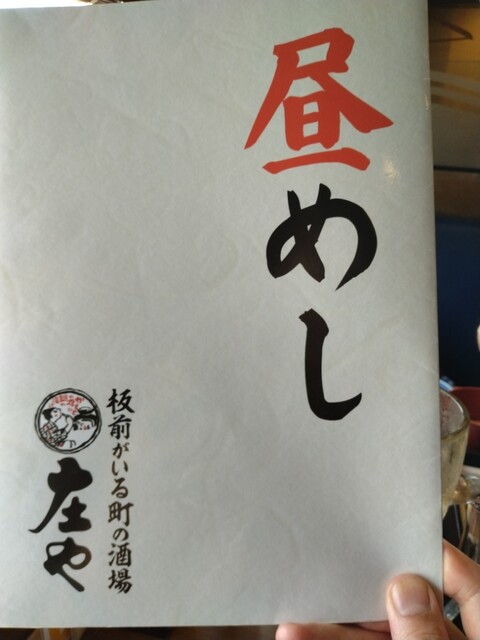 昼めし
板前がいる町の酒場
庄や